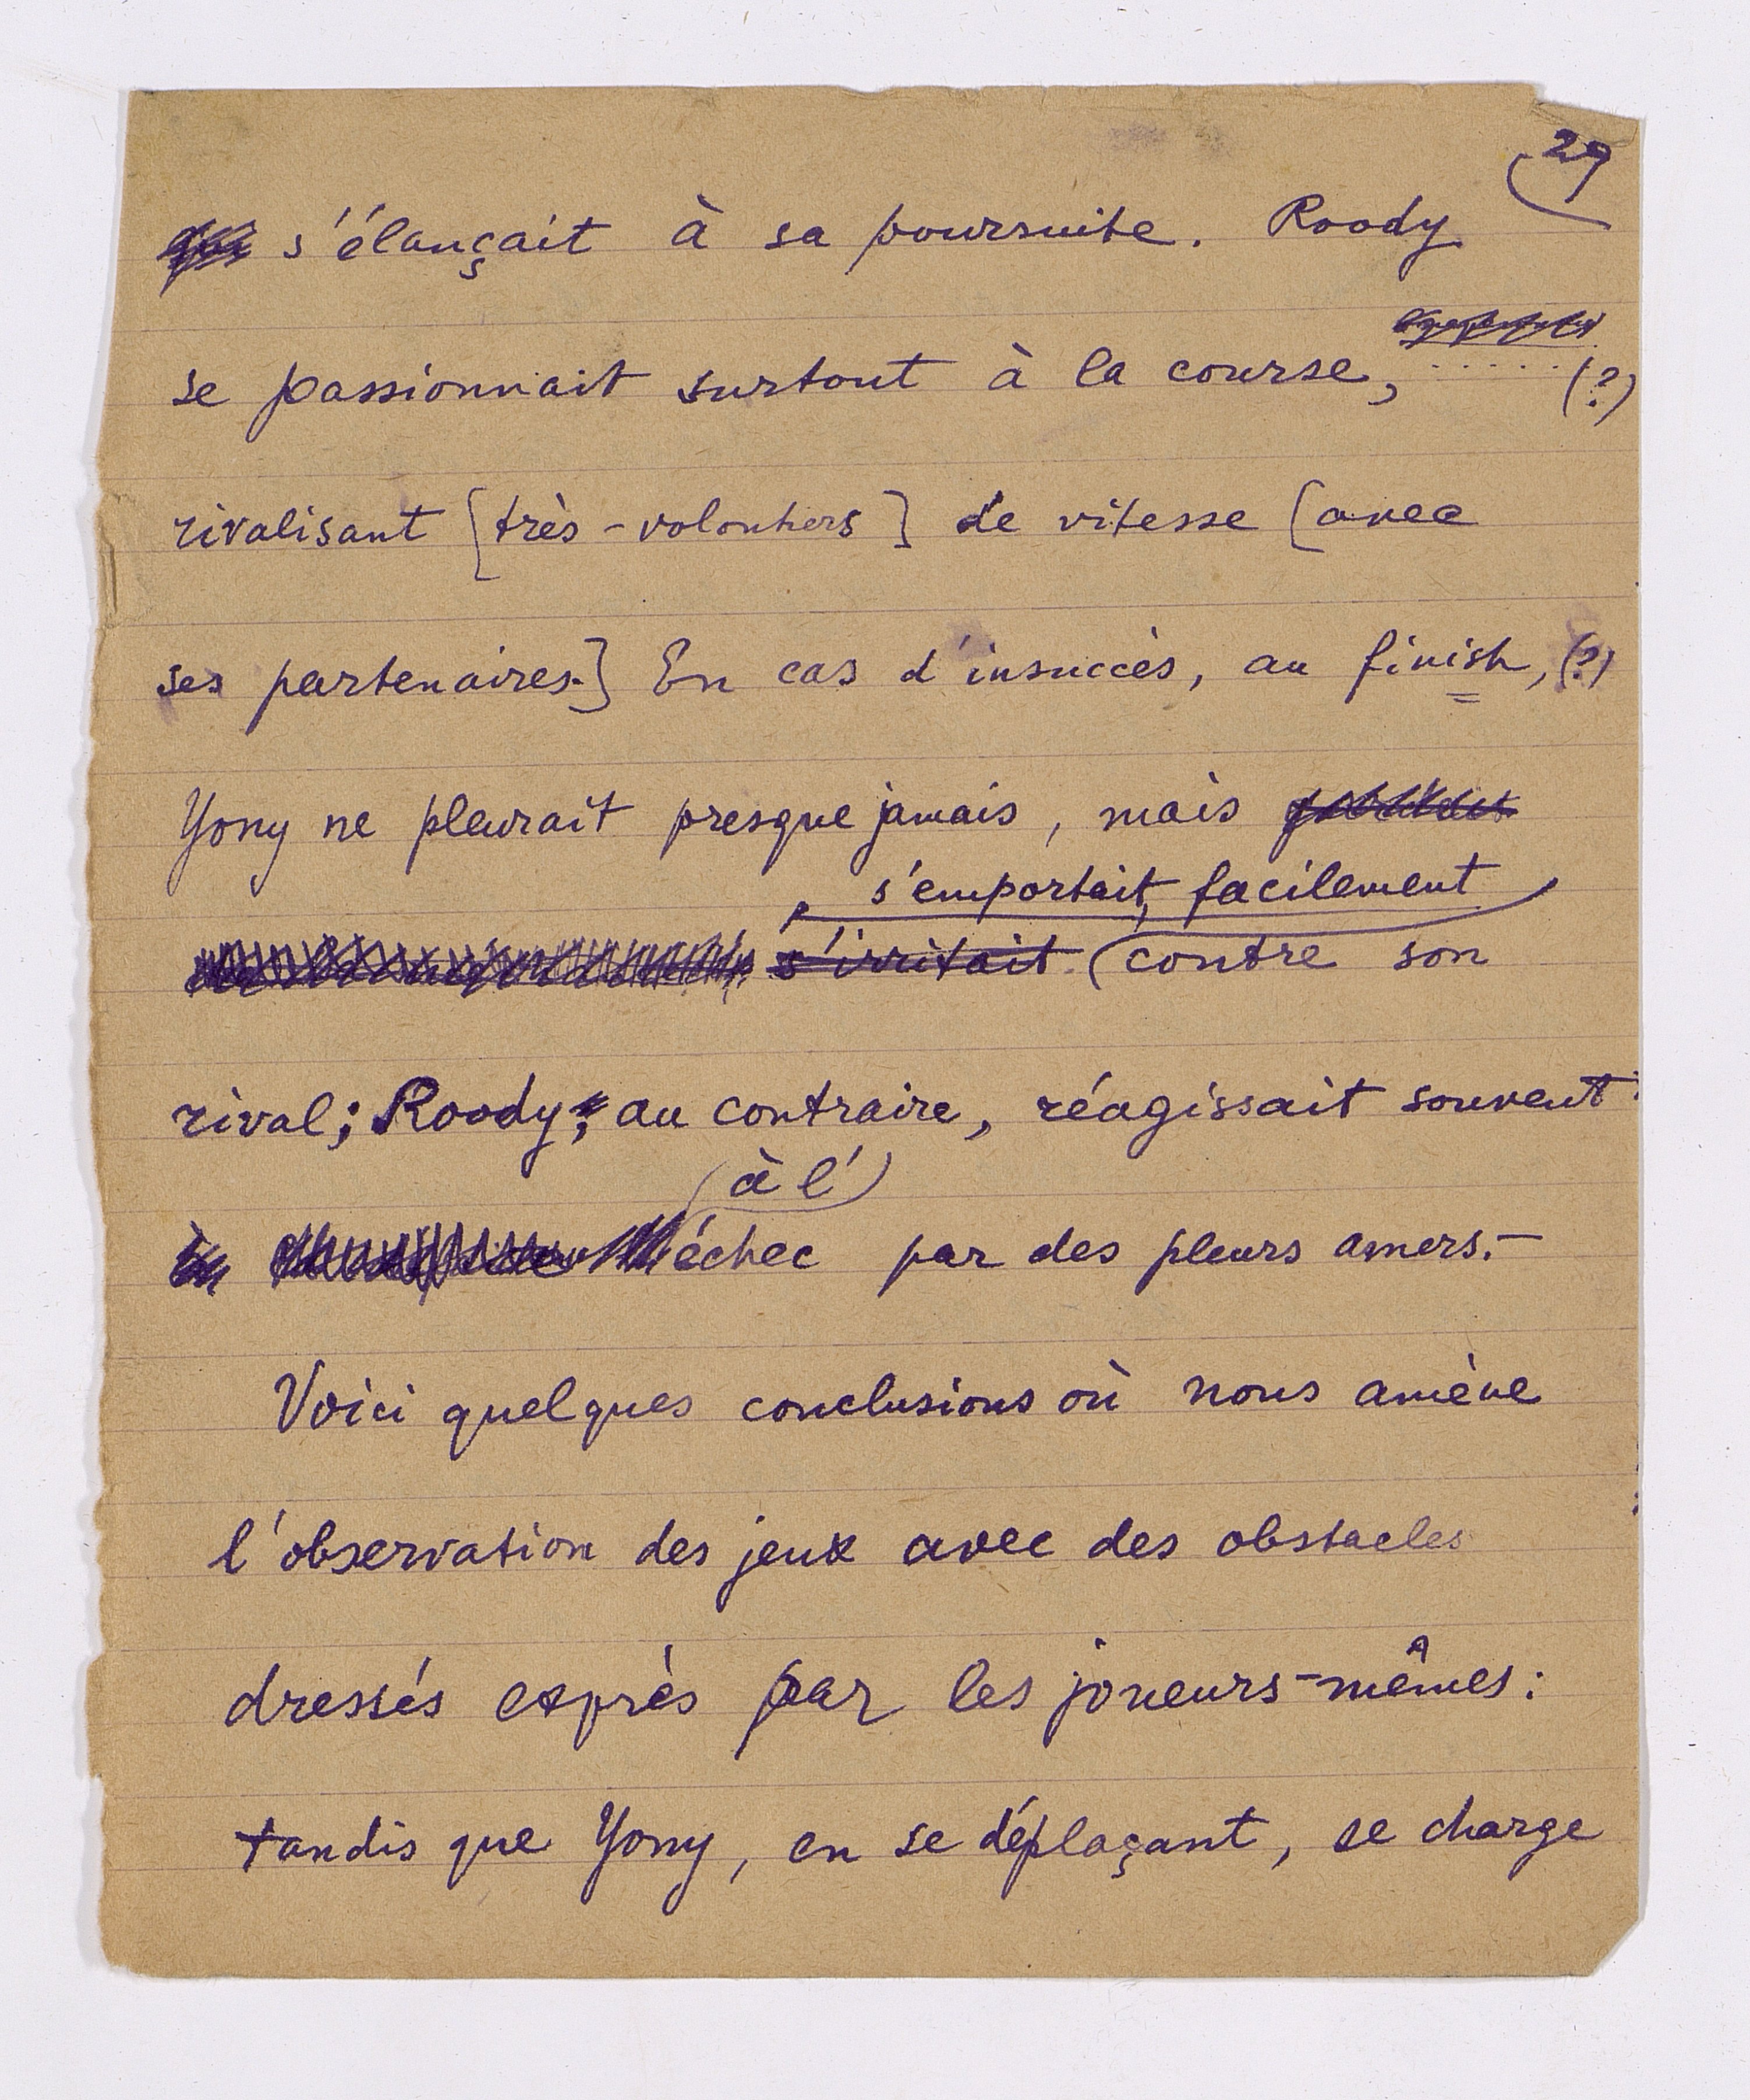 29
s'élançait à sa poursuite. Roody
se passionnait surtout à la course, ..... (?)
rivalisant [très-volontiers] de vitesse [avec
ses partenaires.] En cas d'insuccès, au finish, (?)
Yony ne pleurait presque jamais, mais
s'emportait, facilement
s'irritait (contre son
rival; Roody, au contraire, réagissait souvent
(à l')
échec par des pleurs amers.—
Voici quelques conclusions où nous amène
l'observation des jeux avec des obstacles
dressés exprès par les joueurs-mêmes:
tandis que Yony, en se déplaçant, se charge